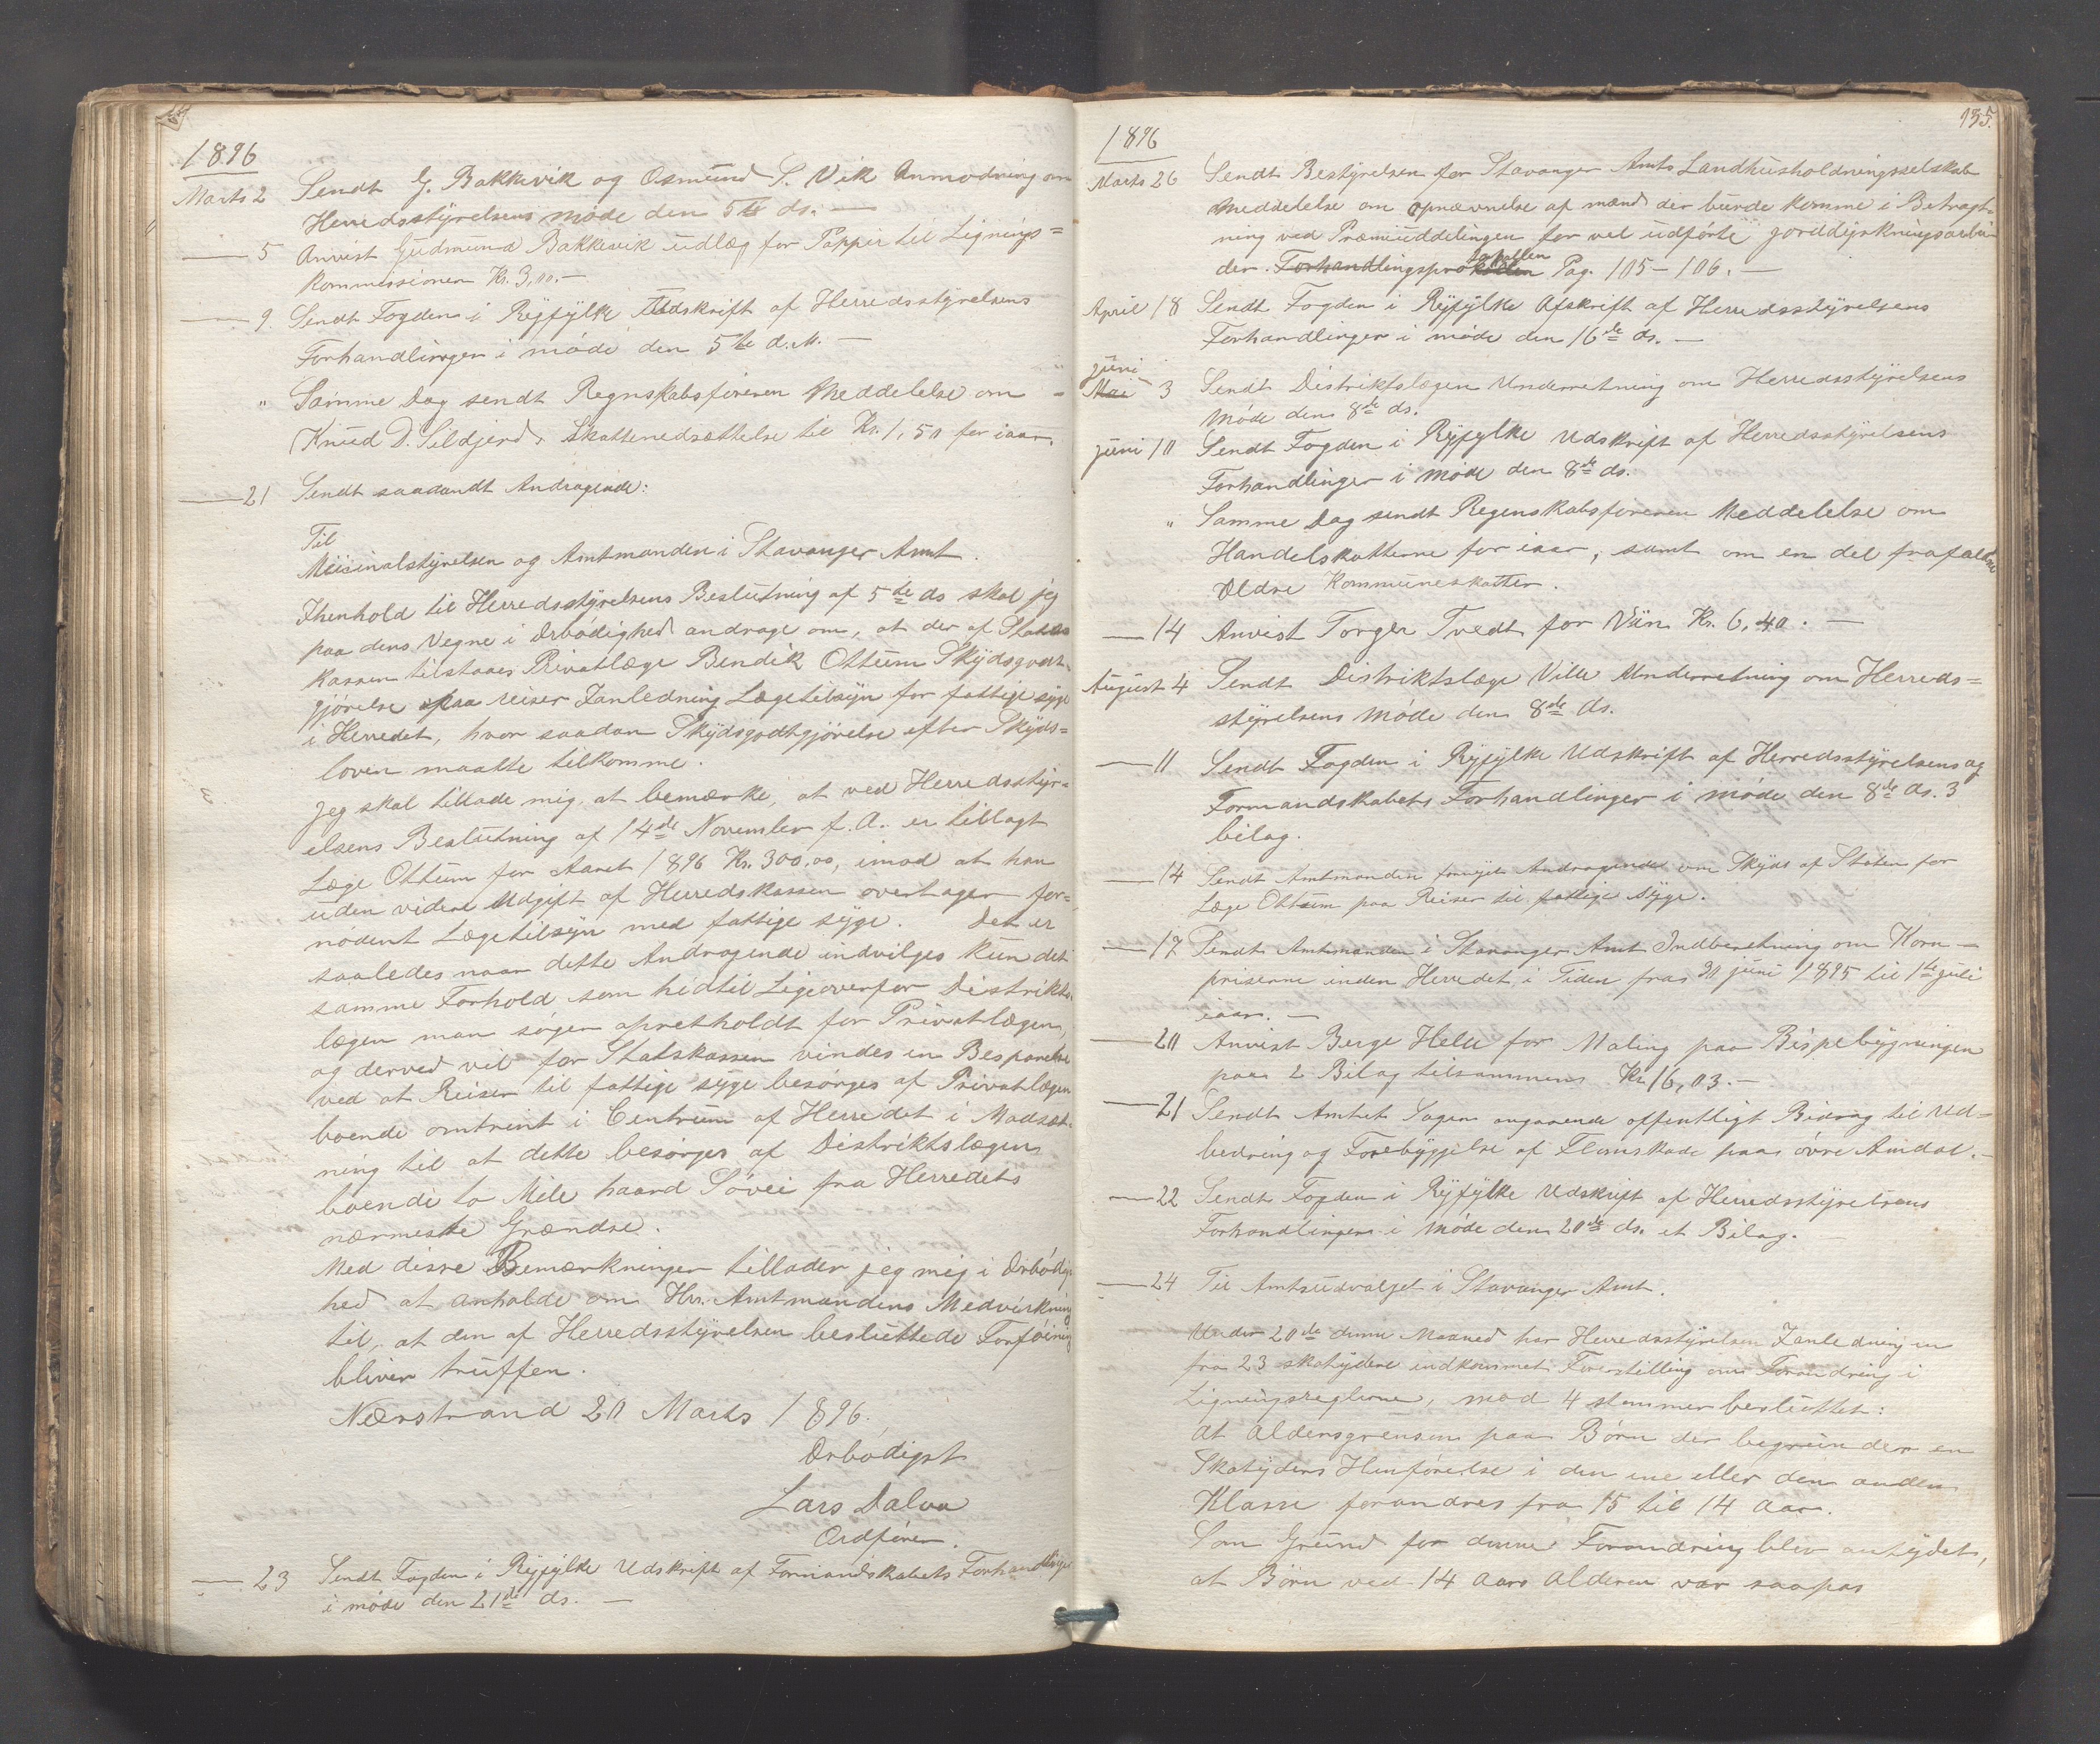 1896
Marts 2 Sendt G. Bakkevik og Osmund S. Vik Anmodning om
Herredsstyrelsens møde den 5te ds. —
" — 5 Anvist Gudmund Bakkevik udlæg for Pappir til Lignings=
kommissionen Kr. 3,00. —
— 9. Sendt Fogden i Ryfylke Udskrift af Herredsstyrelsens
Forhandlinger i møde den 5te d. M. —
" Samme Dag sendt Regnskabsføreren Meddelelse om
Knud D. Sildjerds Skattenedsættelse til Kr. 1,50 for iaar.
— 21 Sendt saadandt Andragende:
Til
Midicinalstyrelsen og Amtmanden i Stavanger Amt.
Ihenhold til Herredsstyrelsens Beslutning af 5te ds skal jeg
paa dens Vegne i Ærbødighed andrage om, at der af Stats
kassen tilstaaes Privatlæge Bendik Ottum Skydsgodt-
gjørelse paa reiser Ianledning Lægetilsyn for fattige syge
i Herredet, hvor saadan Skydsgodtgjørelse efter Skyds=
loven maatte tilkomme.
Jeg skal tillade mig at bemærke, at ved Herredsstyr=
elsens Beslutning af 14de November f. A. er tillagt
Læge Ottum for Aaret 1896 Kr. 300,00, imod at han
uden videre Udgift af Herredskassen overtager for=
nødent Lægetilsyn med fattige syge. Det er
saaledes naar dette Andragende indvilges kun det
samme Forhold som hidtil Ligeoverfor Distrikts
lægen man søger opretholdt for Privatlægen,
og derved vil for Statskassen vindes en Besparelse
ved at Reiser til fattige syge besørges af Privatlægen
boende omtrent i Centrum af Herredet i Modsæt-
ning til at dette besørges af Distriktslægen
boende to Mile haard Søvei fra Herredets
nærmeste Grændse.
Med disse Bemærkninger tillader jeg mig i Ærbødig
hed at anholde om Hr. Amtmandens Medvirkning
til, at den af Herredsstyrelsen besluttede Forføining
bliver truffen.
Nærstrand 20 Marts 1896.
Ærbødigst
Lars Dalva
Ordfører.
— 23 Sendt Fogden i Ryfylke Udskrift af Formandskabets Forhandlinger
i møde den 21de ds. —
135.
1896
Marts 26 Sendt Bestyrelsen for Stavanger Amts Landhusholdningsselskab
Meddelelse om opnævnelse af mænd der burde komme i Betragt-
ning ved Præmiuddelingen for vel udførte jorddyrkningsarbei-
der. Forhandlingsprotokollen Pag. 105-106. —
April 18 Sendt Fogden i Ryfylke Afskrift af Herredsstyrelsens
Forhandlinger i møde den 16de ds. —
Juni
Mai 3 Sendt Distriktslægen Underretning om Herredsstyrelsens
Møde den 8de ds.
Juni 10 Sendt Fogden i Ryfylke Udskrift af Herredsstyrelsens
Forhandlinger i Møde den 8de ds.
" Samme Dag sendt Regenskabsføreren Meddelelse om
Handelskatterne for iaar, samt om en del frafaldne
Ældre Kommuneskatter.
— 14 Anvist Torger Tvedt for Viin Kr. 6,40. —
August 4 Sendt Distriktslæge Ville Underretning om Herreds=
styrelsens Møde den 8de ds.
— 11 Sendt Fogden i Ryfylke Udskrift af Herredsstyrelsens og
Formandskabets Forhandlinger i møde den 8de ds. 3
bilag.
— 14 Sendt Amtmanden fornyet Andragende om Skyds af Staten for
Læge Ottum paa Reiser til fattige syge.
— 17 Sendt Amtmanden i Stavanger Amt Indberetning om Korn-
priserne inden Herredet i Tiden fra 30 juni 1895 til 1ste juli
iaar. —
— 20 Anvist Berge Helle for Maling paa Bispebygningen
paa 2 Bilag tilsammen Kr. 16,03. —
— 21 Sendt Amtet Sagen angaaende offentligt Bidrag til Ud=
bedring og Forebyggelse af Flomskade paa øvre Amdal. —
— 22 Sendt Fogden i Ryfylke Udskrift af Herredsstyrelsens
Forhandlinger i Møde den 20de ds. et Bilag. —
— 24 Til Amtsudvalget i Stavanger Amt.
Under 20de denne Maaned har Herredsstyrelsen Ianledning en
fra 23 skatydere indkommet Forestilling om Forandring i
Ligningsreglerne, mod 4 stemmer besluttet:
at Aldersgrensen paa Børn der begrunder en
Skatyders Henførelse i den ene eller den anden
Klasse forandres fra 15 til 14 Aar.
Som Grund for denne Forandring blev antydet,
at Børn ved 14 Aars Alderen var saapas